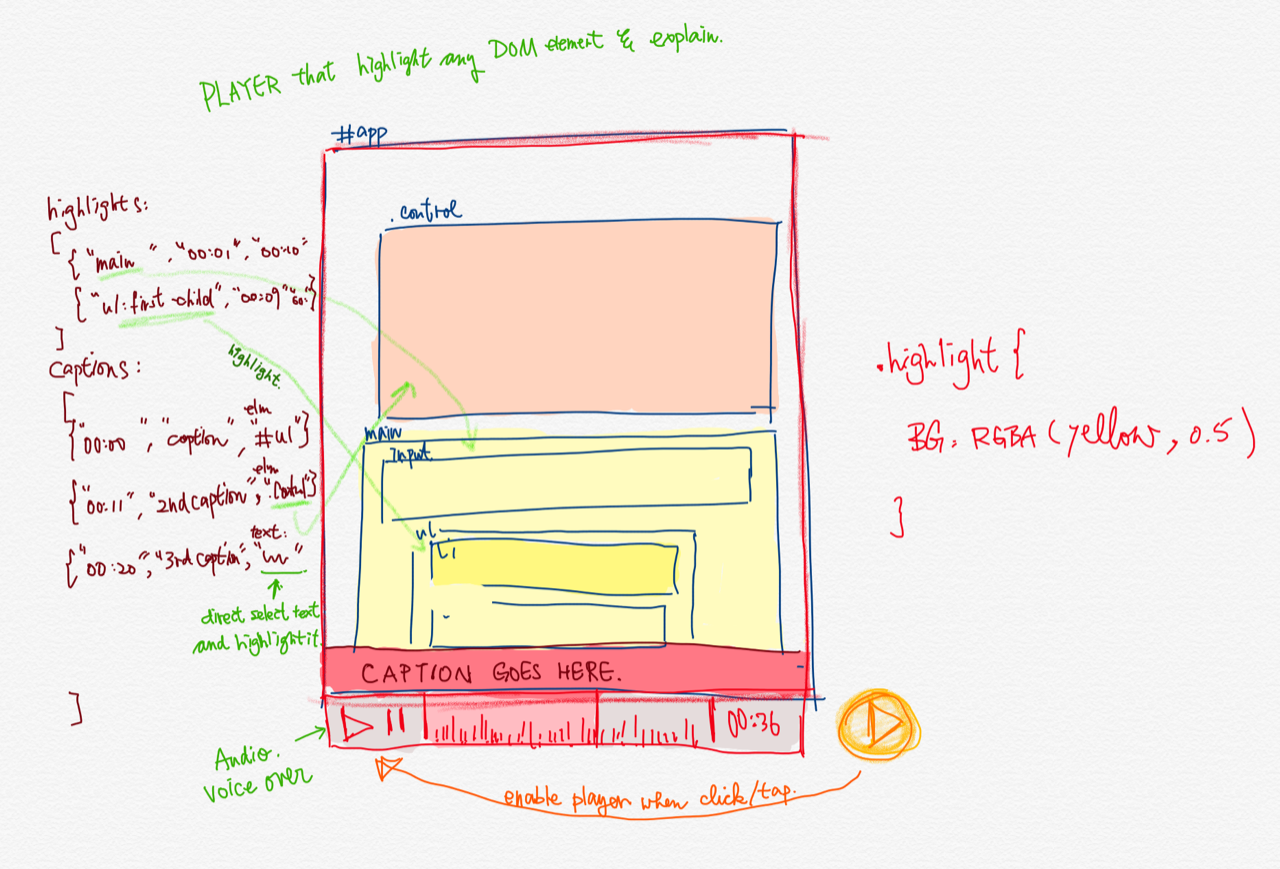 PLAYER that highlight any DOM element & explain.
#app
.control
highlights:
[
{ "main ", "00:01", "00:10"
}
{ "ul:first-child", "00:09" }
]
Captions:
[
elm
{"00:00", "caption", "#ul"}
elm
{"00:11", "2nd caption", ".control"}
text:
{"00:20", "3rd caption", " "
direct select text
and highlight it
]
highlight.
main
Input
ul
Li
CAPTION GOES HERE.
00:36
Audio.
Voice over
enable player when click/tap.
.highlight {
BG: RGBA (yellow, 0.5)
}